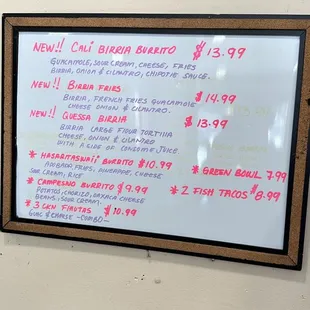 NEW!! CALI BIRRIA BURRITO $13.99
GUACAMOLE, SOUR CREAM, CHEESE, FRIES
BIRRIA, ONION & CILANTRO, CHIPOTLE SAUCE.
NEW!! BIRRIA FRIES. $14.99
BIRRIA, FRENCH FRIES GUACAMOLE
CHEESE ONION & CILANTRO.
NEW!! QUESSA BIRRIA $13.99
BIRRIA LARGE FLOUR TORTILLA
CHEESE ONION & CILANTRO
WITH A SIDE OF CONSOME JUICE
* BURRITO $10.99
FRIES, PINEAPPLE, CHEESE
SOUR CREAM, RICE
* GREEN BOWL 7.99
* CAMPESINO BURRITO $9.99
POTATOS, CHORIZO, OAXACA CHEESE
BEANS, SOUR CREAM.
* 2 FISH TACOS $8.99
* 3 CKN FLAUTAS $10.99
GUAC & CHEESE -COMBO-